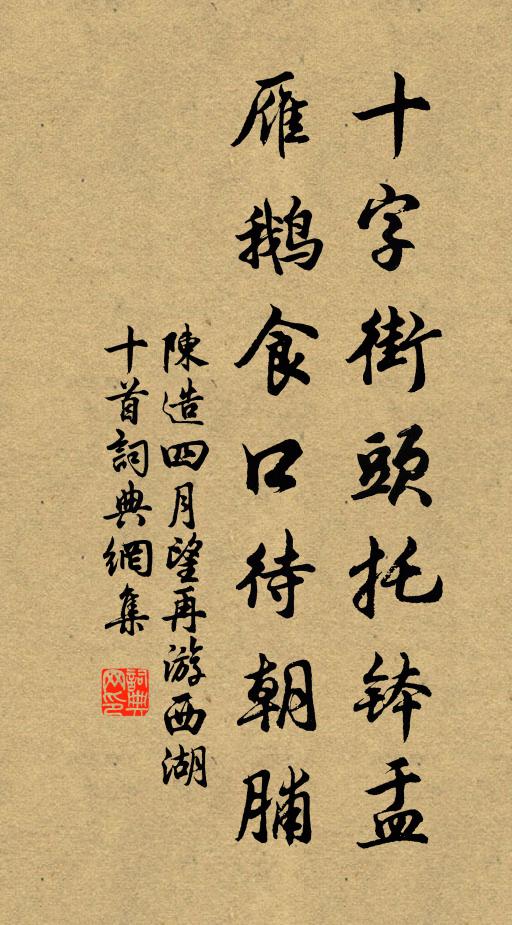 十字街頭托钵盂
雁鹅食口待朝脯
陳造四月望再游西湖
十首詞典網集
詞典网印